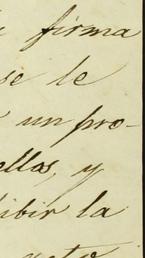 firma
se le
un pro-
ellos, y
ibir la